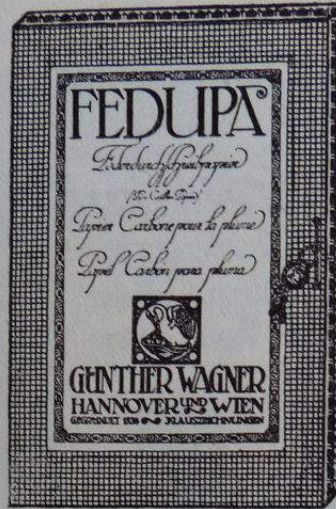 FEDUPA
Federdurchschreibpapier
Papier Carbone pour la plume
Papel Carbón para pluma
GÜNTHER WAGNER
HANNOVER UND WIEN
GEGRÜNDET 1838 AUSZEICHNUNGEN